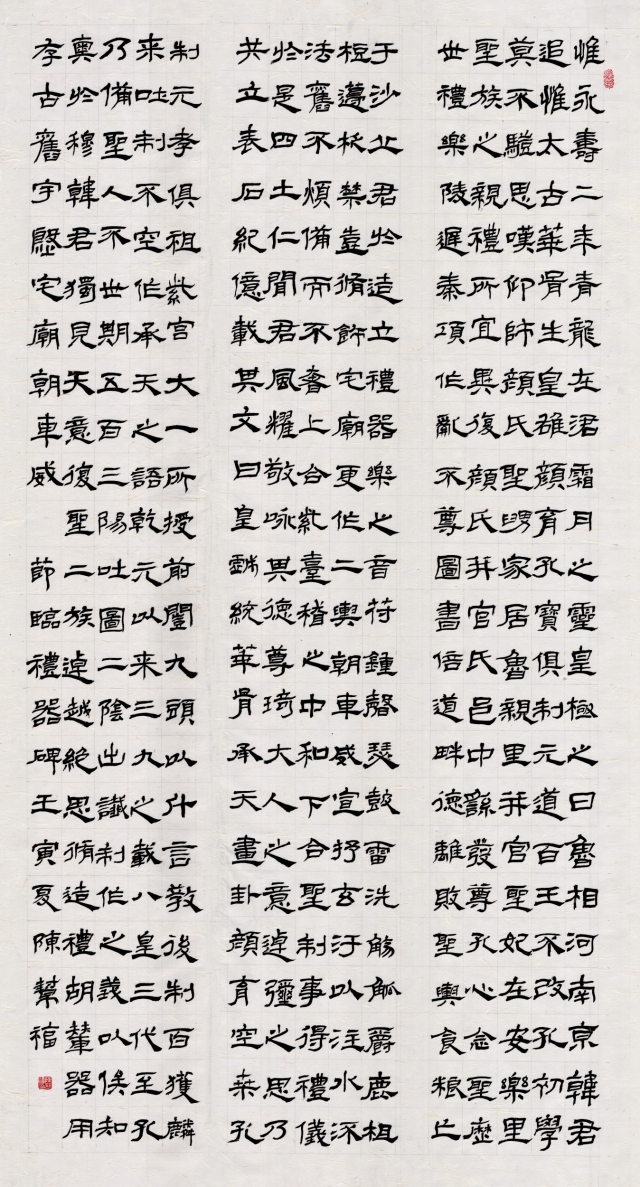 惟永壽二年青龍在涒霜月之靈皇極之日魯相河南京韓君
追惟太古華胥生皇雄顏育孔寶俱制元道百王不改孔初學
莫不驗思嘆仰師顏氏聖舅家居魯親里并官聖妃在安樂里
聖族之親禮所宜異復顏氏并官氏邑中繇發尊孔心念聖歷
世禮樂陵遲秦項作亂不尊圖書倍道畔德離敗聖輿食糧亡
于沙丘君於造立禮器樂之音苻鍾磬瑟鼓雷洗觴觚爵鹿柤
梪籩柉禁豈脩飾宅廟更作二輿朝車威宣抒玄汙以注水流
法舊不煩備而不奢上合紫臺稽之中和下合聖制事得禮儀
於是四土仁聞君風燿敬咏其德尊琦大人之意逴彌之思乃
共立表石紀億載其文曰皇戲統華胥承天畫卦顏育空桑孔
制元孝俱祖紫宮大一所授前闓九頭以什言教後制百獲麟
來吐制不空作承天之語乾元以來三九之載八皇三代至孔
乃備聖人不世期五百三陽吐圖二陰出讖制作之義以俟知
奧於穆韓君獨見天意復聖二族逴越絕思脩造禮胡輦器用
存古舊宇慇宅廟朝車威 節臨禮器碑壬寅夏陳幫福